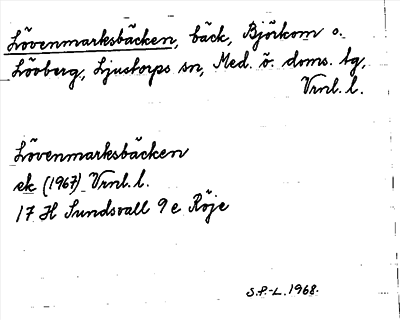 Lövenmarksbäcken, bäck, Björkom o.
Lövberg, Ljustorps sn, Med. ö. doms. tg,
Vrnl. l.
Lövenmarksbäcken
ek (1967) Vrnl. l.
17 H Sundsvall 9 e Röje
S.P.-L. 1968.